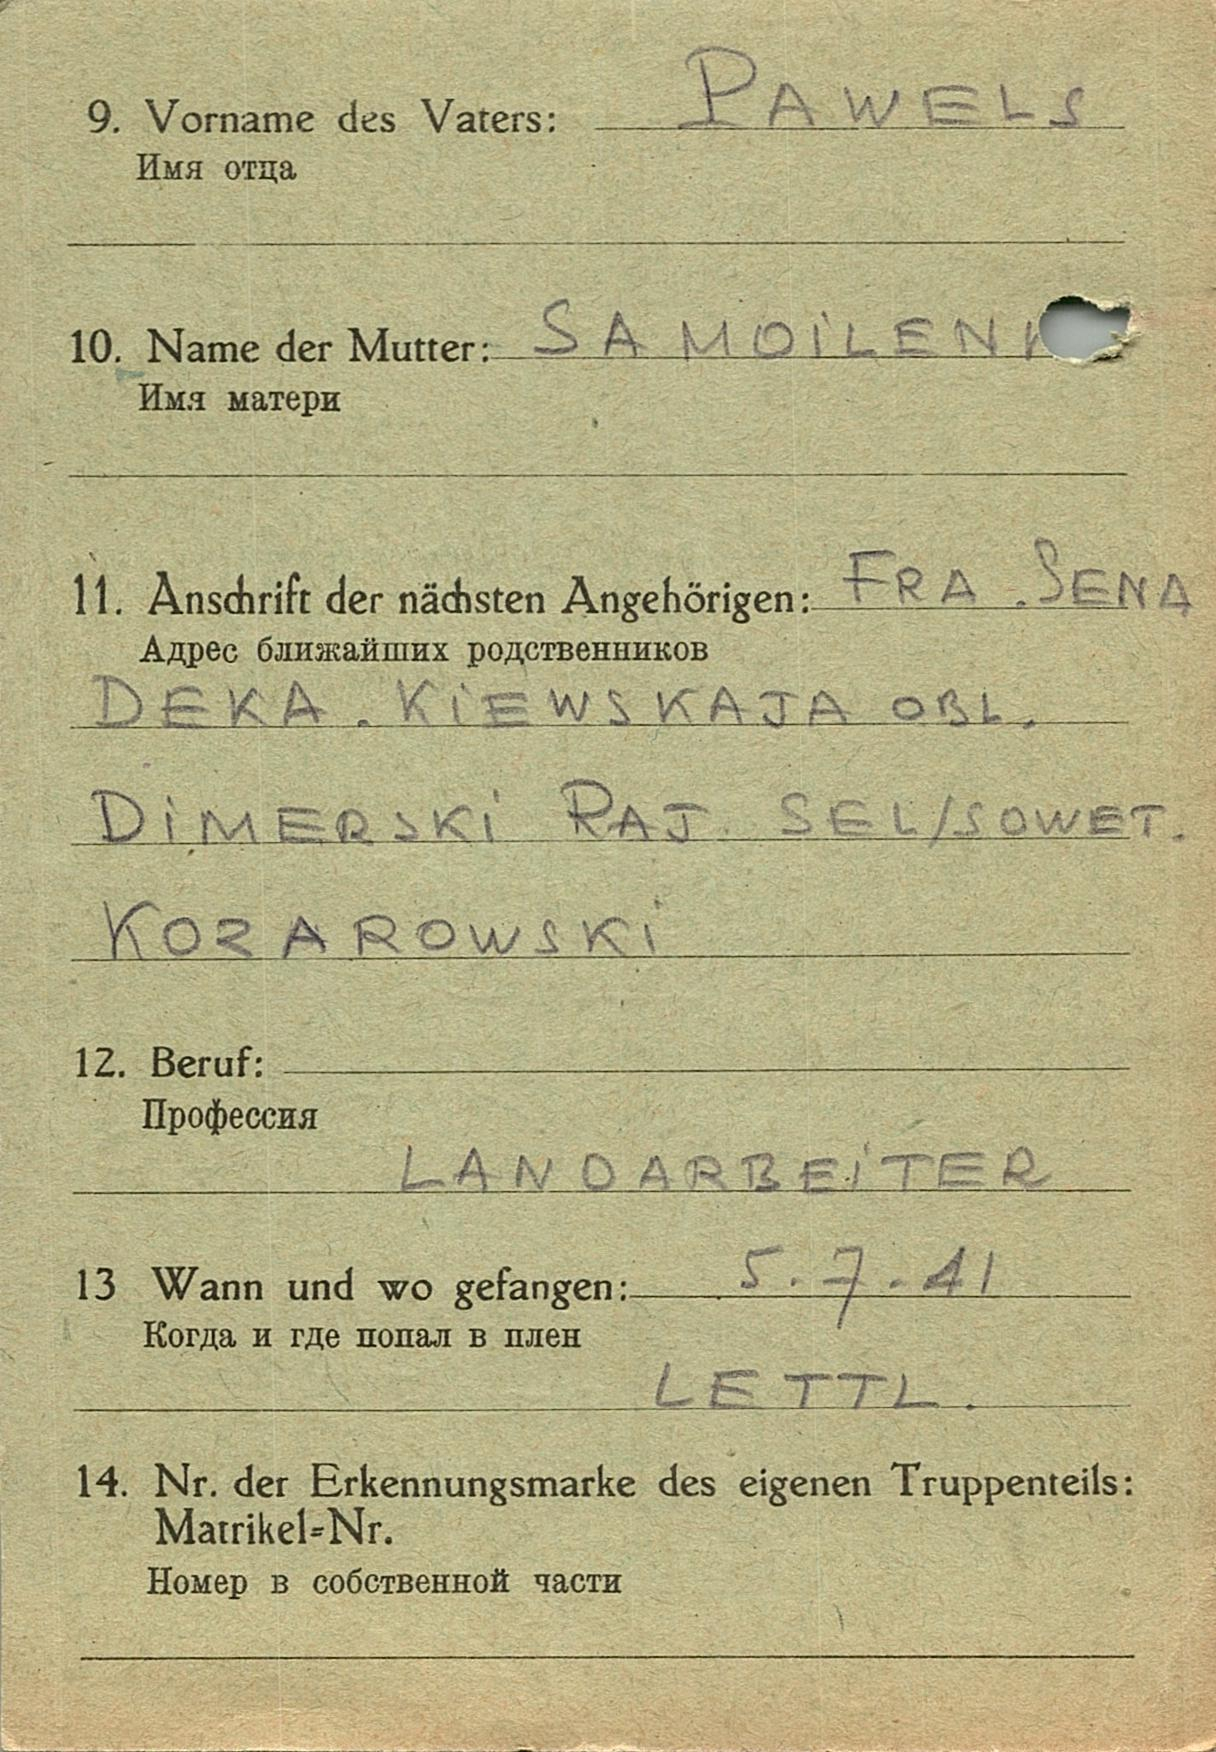 9. Vorname des Vaters: PAWELS
Имя отца
10. Name der Mutter: SAMOILENK
Имя матери
11. Anschrift der nächsten Angehörigen: FRA. SENA
Адрес ближайших родственников
DEKA. KIEWSKAJA OBL.
DIMERSKI RAJ. SEL/SOWET.
KOZAROWSKI
12. Beruf:
Профессия
LANDARBEITER
13 Wann und wo gefangen: 5.7.41
Когда и где попал в плен
LETTL.
14. Nr. der Erkennungsmarke des eigenen Truppenteils:
Matrikel-Nr.
Номер в собственной части